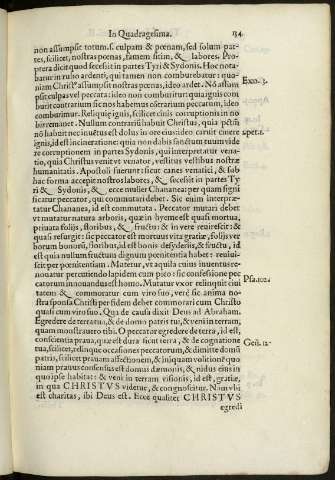 In Quadragesima. 134
non assumpsit totum, s. culpam & pœnam, sed solum par-
tes, scilicet, nostras pœnas, famem sitim, & labores. Pro-
ptera dicit quod secessit in partes Tyri & Sydonis. Hoc nota-
batur in rubo ardenti, qui tamen non comburebatur: quo- Exo. 3.
niam Christꝰ assumpsit nostras pœnas, ideo ardet. Nō assum
psit culpas vel peccata: ideo non comburitur quia ignis com
burit contrarium sic nos habemus ostrarium peccatum, ideo
comburimur. Reliquię ignis, scilicet cinis corruptionis in no
bis remanet. Nullum contrariū habuit Christus, quia pctm̄
nō habuit nec inuētus est dolus in ore eius: ideo caruit cinere 1.pet. 2.
ignis, id est incineratione: quia non dabis sanctum tuum vide
re corruptionem in partes Sydonis, qui interpretatur vena-
tio, quia Christus venit vt venator, vestitus vestibus nostræ
humanitatis. Apostoli fuerunt: sicut canes venatici, & sub
hac forma accepit nostros labores, & secessit in partes Ty
ri & Sydonis, & ecce mulier Chananea: per quam signi
ficatur peccator, qui commutari debet. Sic enim interpræ-
tatur Chananea, id est commutata. Peccator mutari debet
vt mutatur natura arboris, quæ in hyeme est quasi mortua,
priuata folijs, floribus, & fructu: & in vere reuirescit: &
quasi resurgit: sic peccator est mortuus vita gratiæ, folijs ver
borum bonorū, floribus, id est bonis desyderijs, & fructu, id
est quia nullum fructum dignum pœnitentia habet: reuiui-
scit per pœnitentiam. Mutetur, vt aquila cuius iuuentus re-
nouatur percutiendo lapidem cum pico: sic confessione pec
catorum innouandus est homo. Mutatur vxor relinquit ciui Psa. 102.
tatem & commoratur cum viro suo, verè sic anima no-
stra sponsa Christi per fidem debet commorari cum Christo
quasi cum viro suo. Qua de causa dixit Deus ad Abraham.
Egredere de terra tua, & de domo patris tui, & veni in terram,
quam monstrauero tibi. O peccator egredere de terra, id est, Gen. 12.
conscientia praua, quæ est dura sicut terra, & de cognatione
tua, scilicet, relinque occasiones peccatorum, & dimitte domū
patris, scilicet prauam affectionem, & iniquam volitionē quo
niam prauus consensus est domus dæmonis, & nidus eius in
quo ipse habitat: & veni in terram visionis, id est, gratiæ,
in qua CHRISTVS videtur, & cognoscitur. Nam vbi
est charitas, ibi Deus est. Ecce qualiter CHRISTVS
egredi